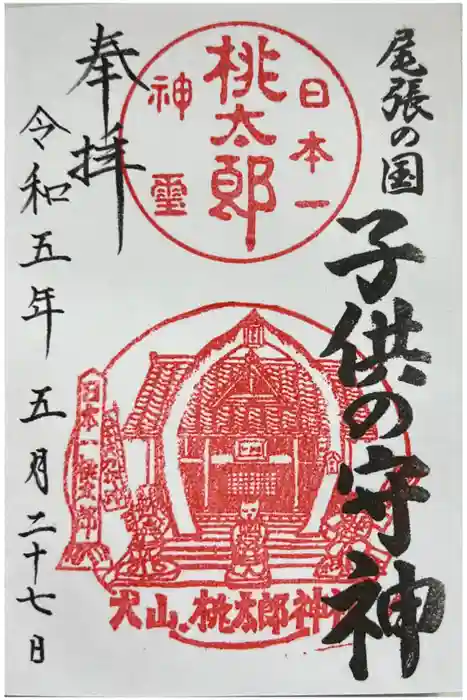 尾張の国
子供の守神
日本一
桃太郎
神霊
奉拝
令和五年 五月二十七日
日本一桃太郎
犬山 桃太郎神社